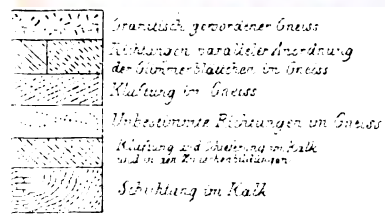 Granitisch gewordener Gneiss
Richtungen paralleler Anordnung
der Glimmerblättchen im Gneiss
Klüftung im Gneiss
Unbestimmte Richtungen im Gneiss
Klüftung und Schieferung im Kalk
und in den Zwischenbildungen
Schichtung im Kalk